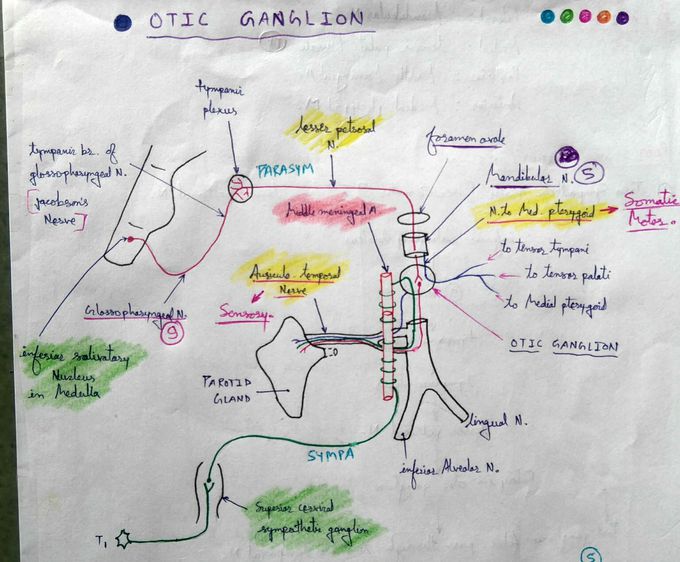 OTIC GANGLION
tympanic
plexus
lesser petrosal
N.
foramen ovale
PARASYM
tympanic br. of
glossopharyngeal N.
[Jacobson's
Nerve]
Mandibular N. 5
N. to Med. pterygoid → Somatic
Motor.
Middle meningeal A
to tensor tympani
to tensor palati
to Medial pterygoid
Auriculo-temporal
Nerve
Sensory.
Glossopharyngeal N.
9
OTIC GANGLION
inferior salivatory
Nucleus
in Medulla
PAROTID
GLAND
lingual N.
inferior Alveolar N.
SYMPA
Superior cervical
sympathetic ganglion
T1
5